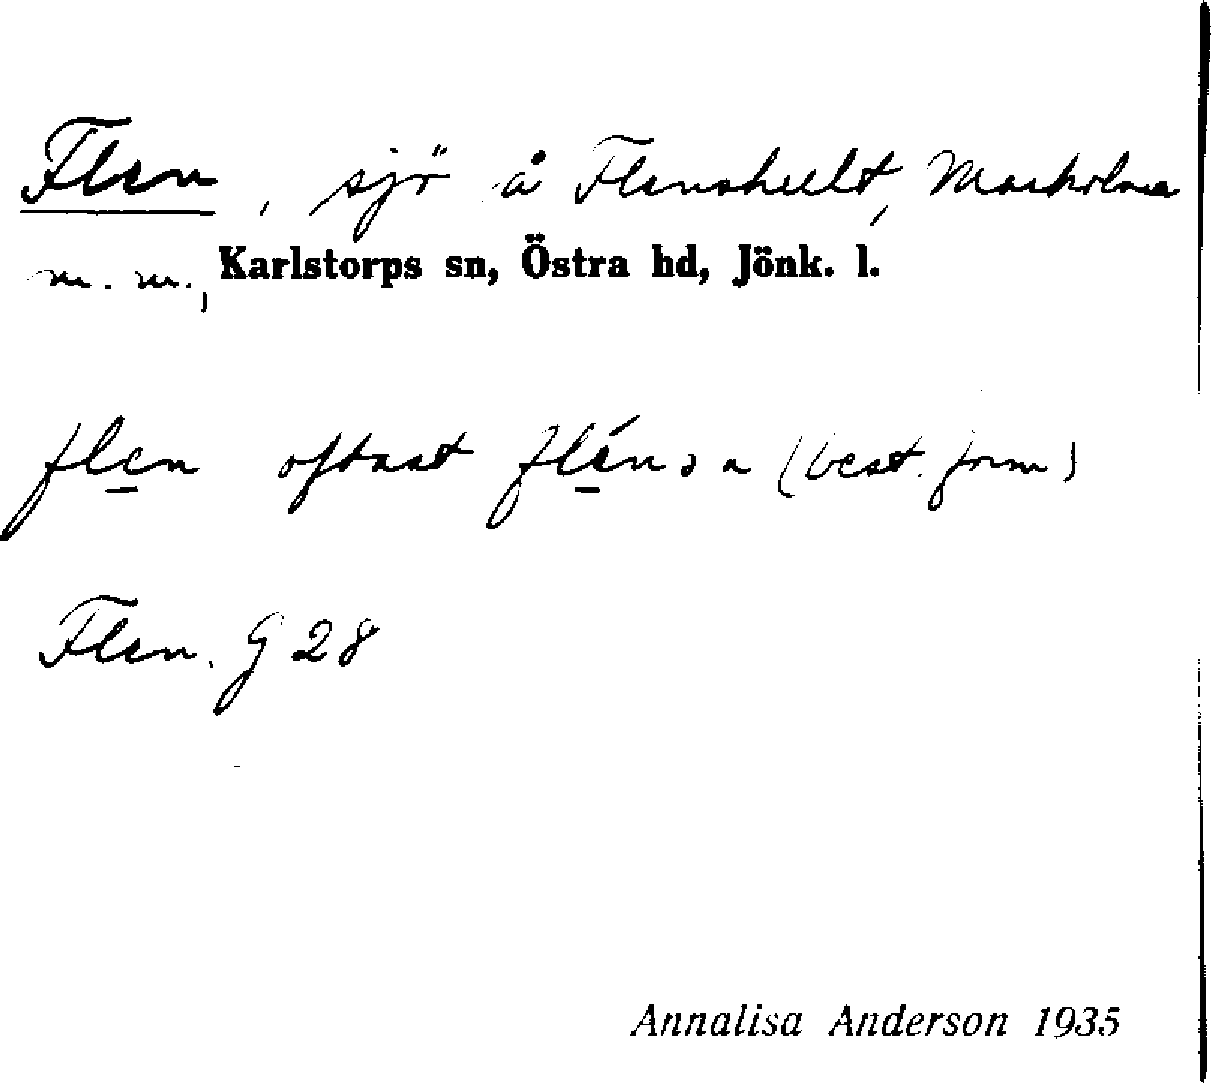 Flen, sjö å Flenshult, Markolma
m. m., Karlstorps sn, Östra hd, Jönk. l.
fle̲n oftast flé̲nɔn (best. form)
Flen. G 28
Annalisa Anderson 1935